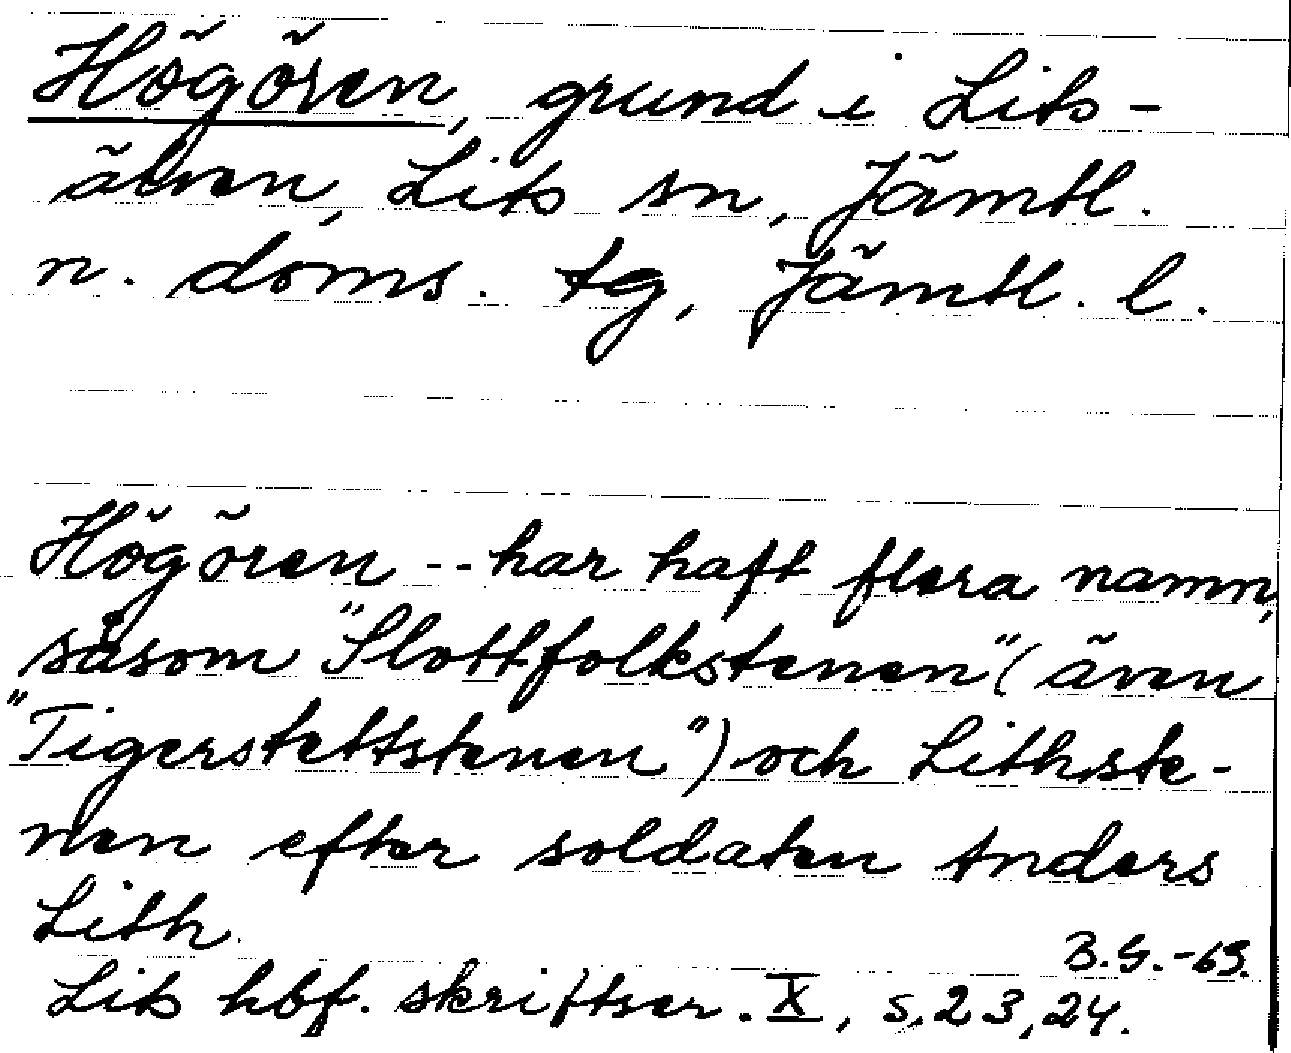 Högören, grund i Lits-
älven, Lits sn, Jämtl.
n. doms. tg, Jämtl. l.
Högören -- har haft flera namn,
såsom "Slottfolkstenen" (även
"Tigerstettstenen") och Lithste-
nen efter soldaten Anders
Lith.
B.G.-69.
Lits hbf. skriftser. X, s. 23, 24.